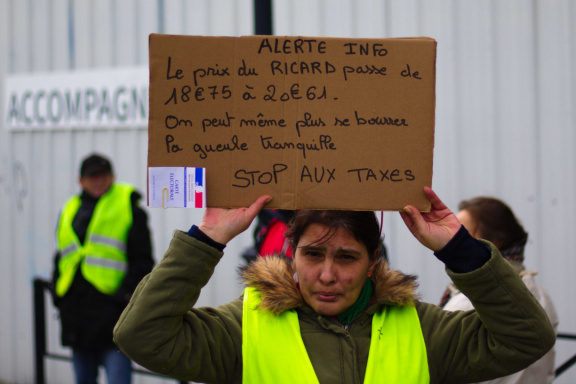 ACCOMPAGN
ALERTE INFO
Le prix du RICARD passe de
18€75 à 20€61.
On peut même plus se bourrer
la gueule tranquille
STOP AUX TAXES
CARTE
ÉLECTORALE